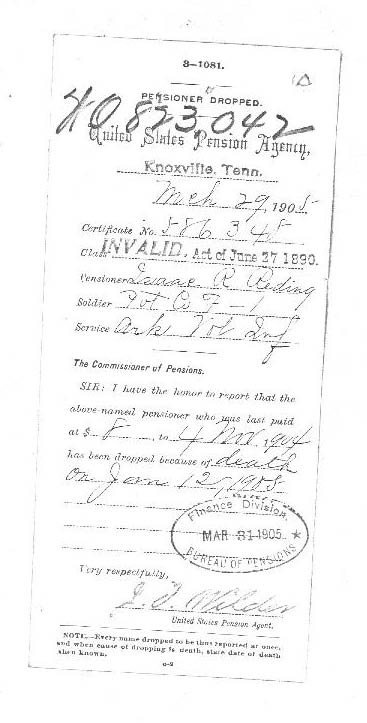 3-1081.
PENSIONER DROPPED.
WO 823,042
United States Pension Agency,
Knoxville, Tenn.
Mch 29, 1905
Certificate No. 586 345
Class INVALID, Act of June 27 1890.
Pensioner Isaac R Reding
Soldier Pvt Co F - 1
Service Ark Vol Inf
The Commissioner of Pensions.
SIR: I have the honor to report that the
above-named pensioner who was last paid
at $ 8, to 4 Nov, 1904
has been dropped because of death
on Jan 12, 1905
Finance Division.
MAR 31 1905
BUREAU OF PENSIONS
Very respectfully,
J. T. Wilder
United States Pension Agent.
NOTE.—Every name dropped to be thus reported at once,
and when cause of dropping is death, state date of death
when known.
6-2